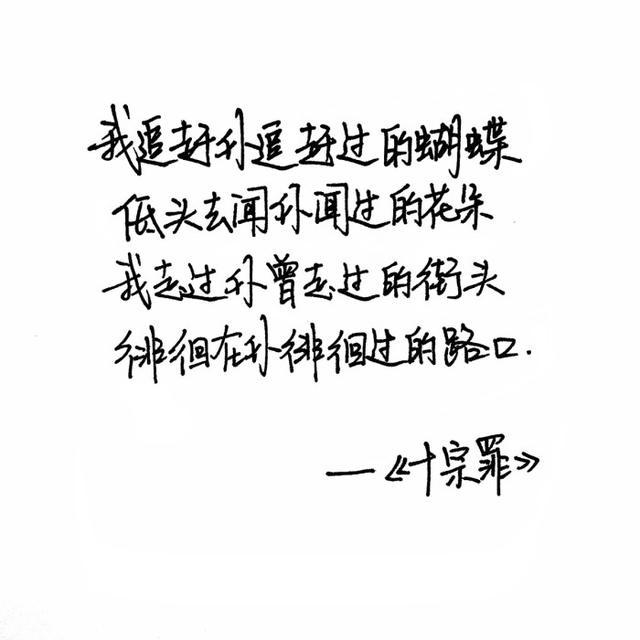 我追赶你追赶过的蝴蝶
低头去闻你闻过的花朵
我走过你曾走过的街头
徘徊在你徘徊过的路口.
——《十宗罪》